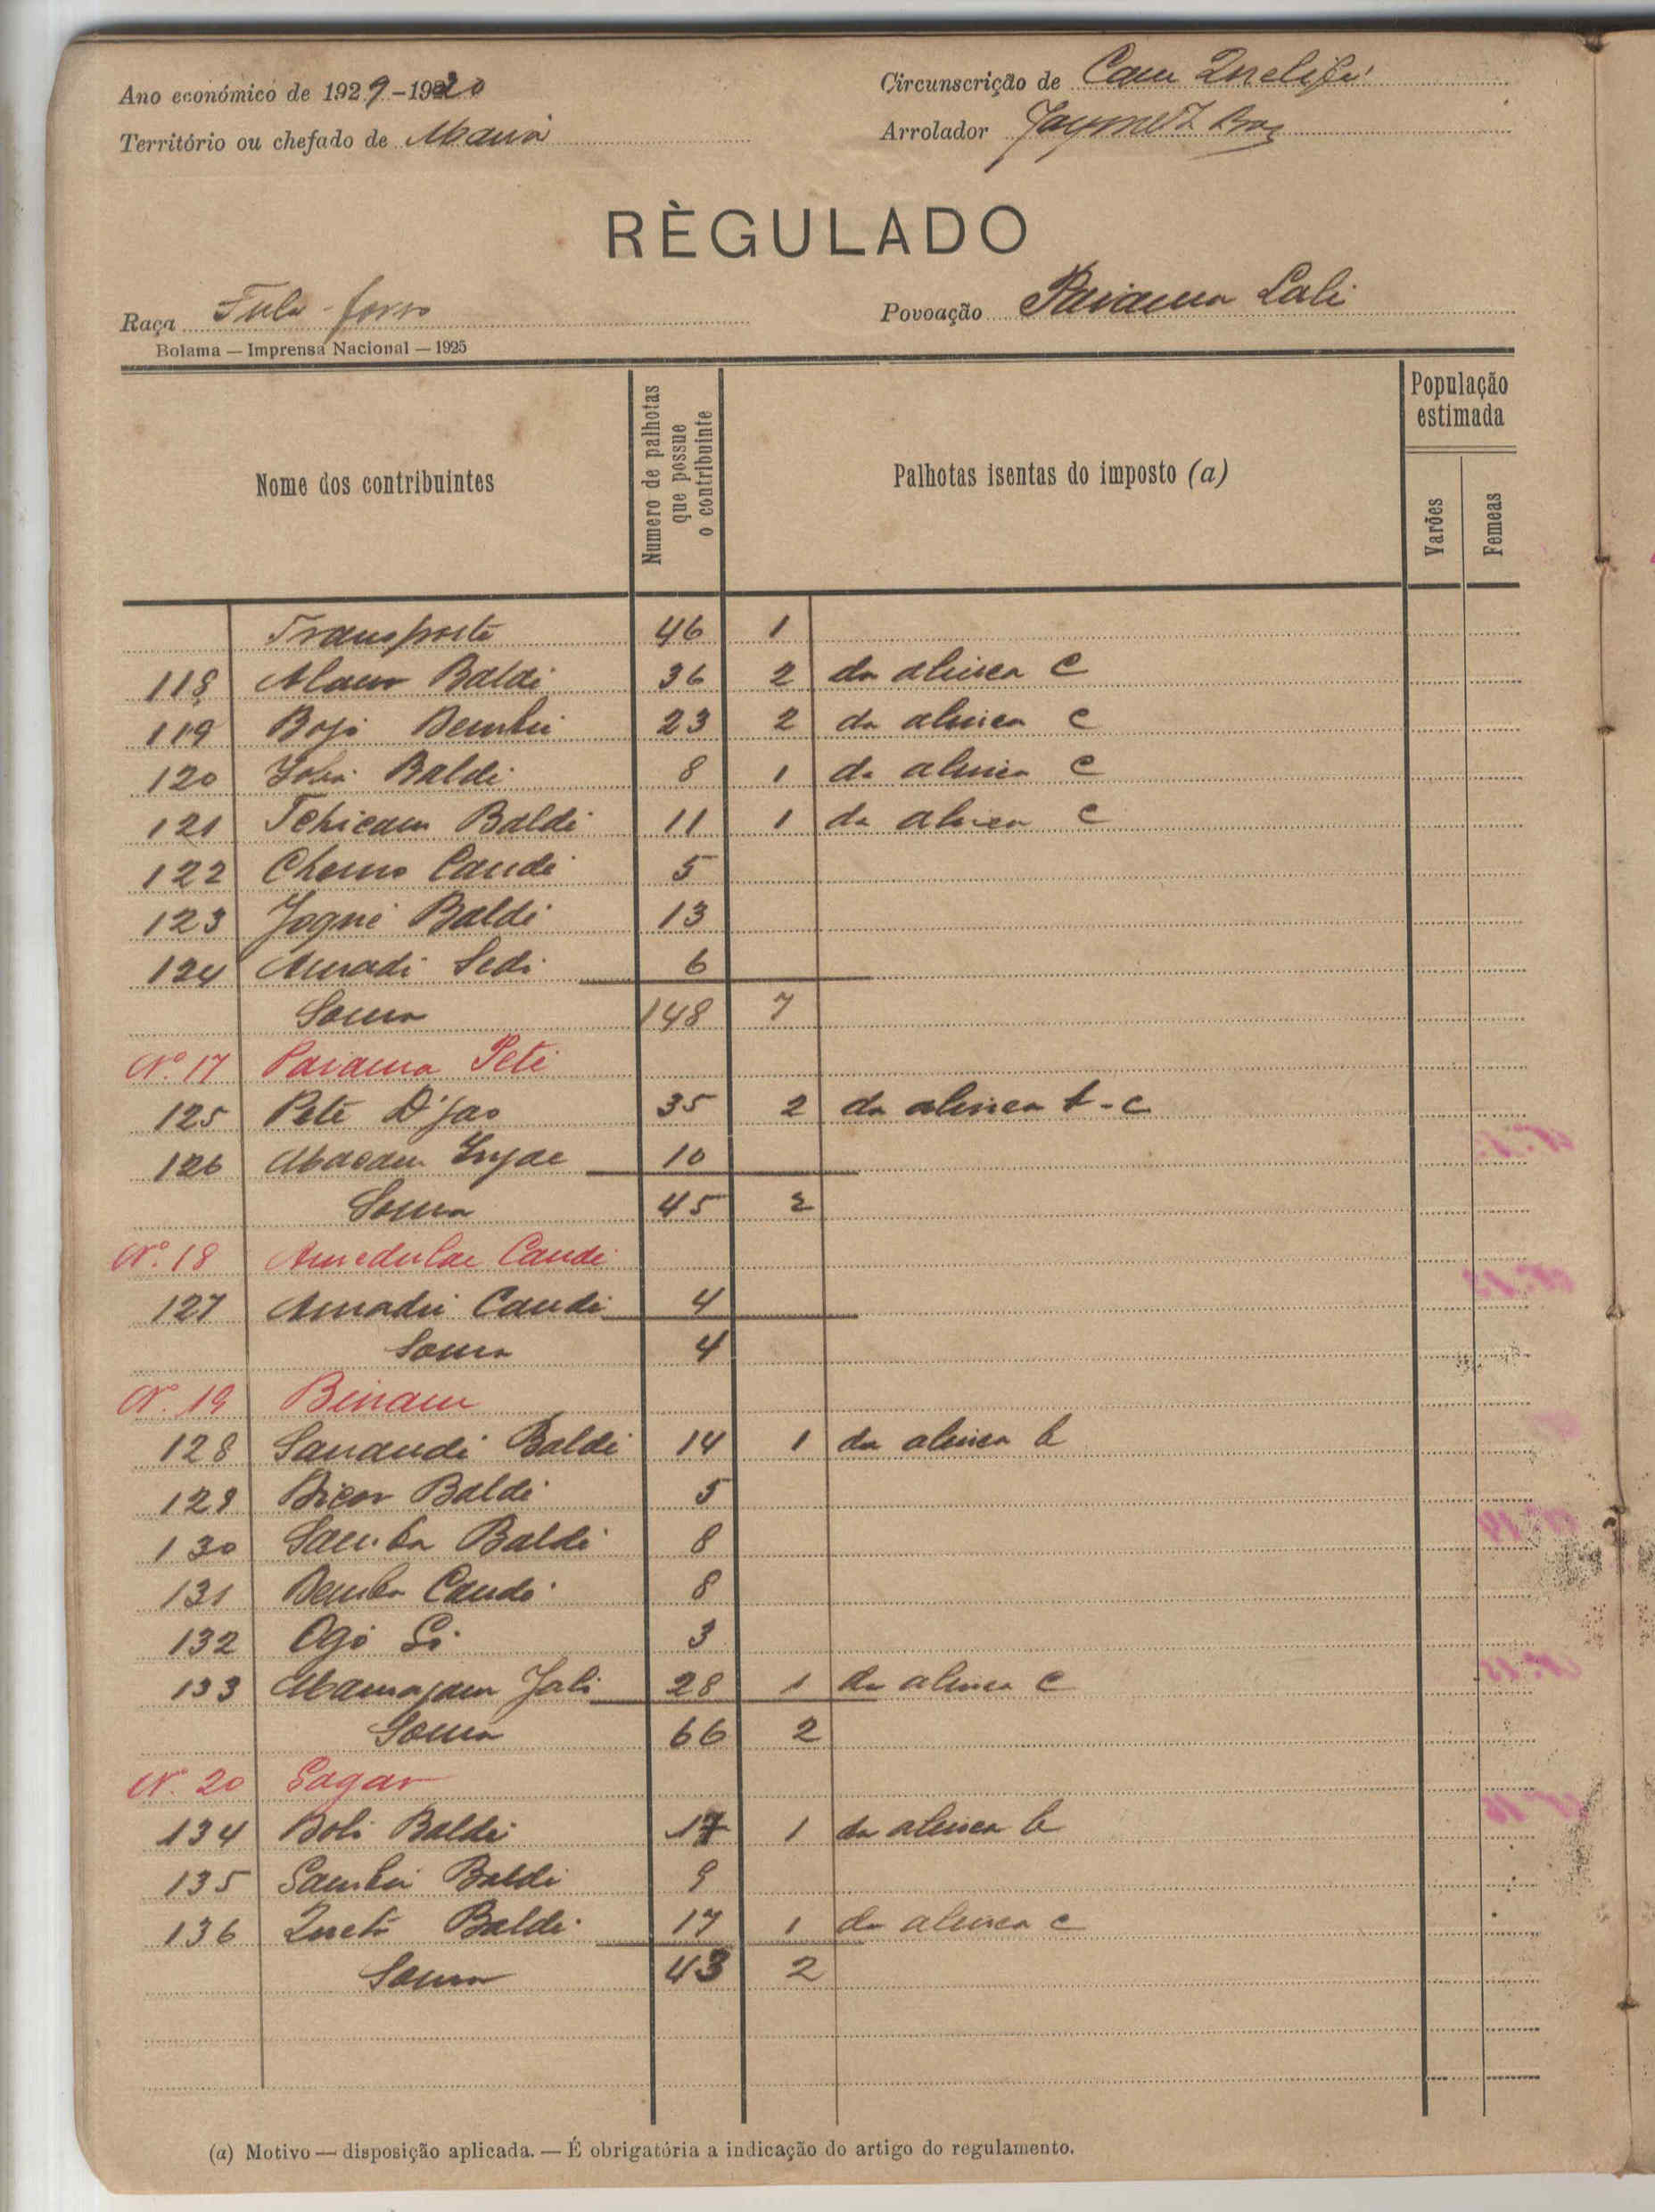 Ano económico de 1929-1930
Circunscrição de
Território ou chefado de Maná
Arrolador Jayme Z Braz
RÈGULADO
Raça Fula-forro
Povoação Paiama Lali
Bolama — Imprensa Nacional — 1925
Nome dos contribuintes
Numero de palhotas que possue o contribuinte
Palhotas isentas do imposto (a)
População estimada
Varões
Femeas
Transporte 46 1
118 Baldé 36 2 da alinea c
119 Demba 23 2 da alinea c
120 Baldé 8 1 da alinea c
121 Tchicam Baldé 11 1 da alinea c
122 Cherno Candé 5
123 Jogué Baldé 13
124 Amadi Sedi 6
Soma 148 7
Nº 17 Paiama Peté
125 Peté D'jao 35 2 da alinea b-c
126 10
Soma 45 2
Nº 18 Amedulae Candé
127 Amadú Candé 4
Soma 4
Nº 19 Binam
128 Sanandé Baldé 14 1 da alinea b
129 Baldé 5
130 Samba Baldé 8
131 Demba Candé 8
132 Ogó Só 3
133 Jali 28 1 da alinea c
Soma 66 2
Nº 20 Sagar
134 Boli Baldé 17 1 da alinea b
135 Samba Baldé 9
136 Queta Baldé 17 1 da alinea c
Soma 43 2
(a) Motivo — disposição aplicada. — É obrigatória a indicação do artigo do regulamento.